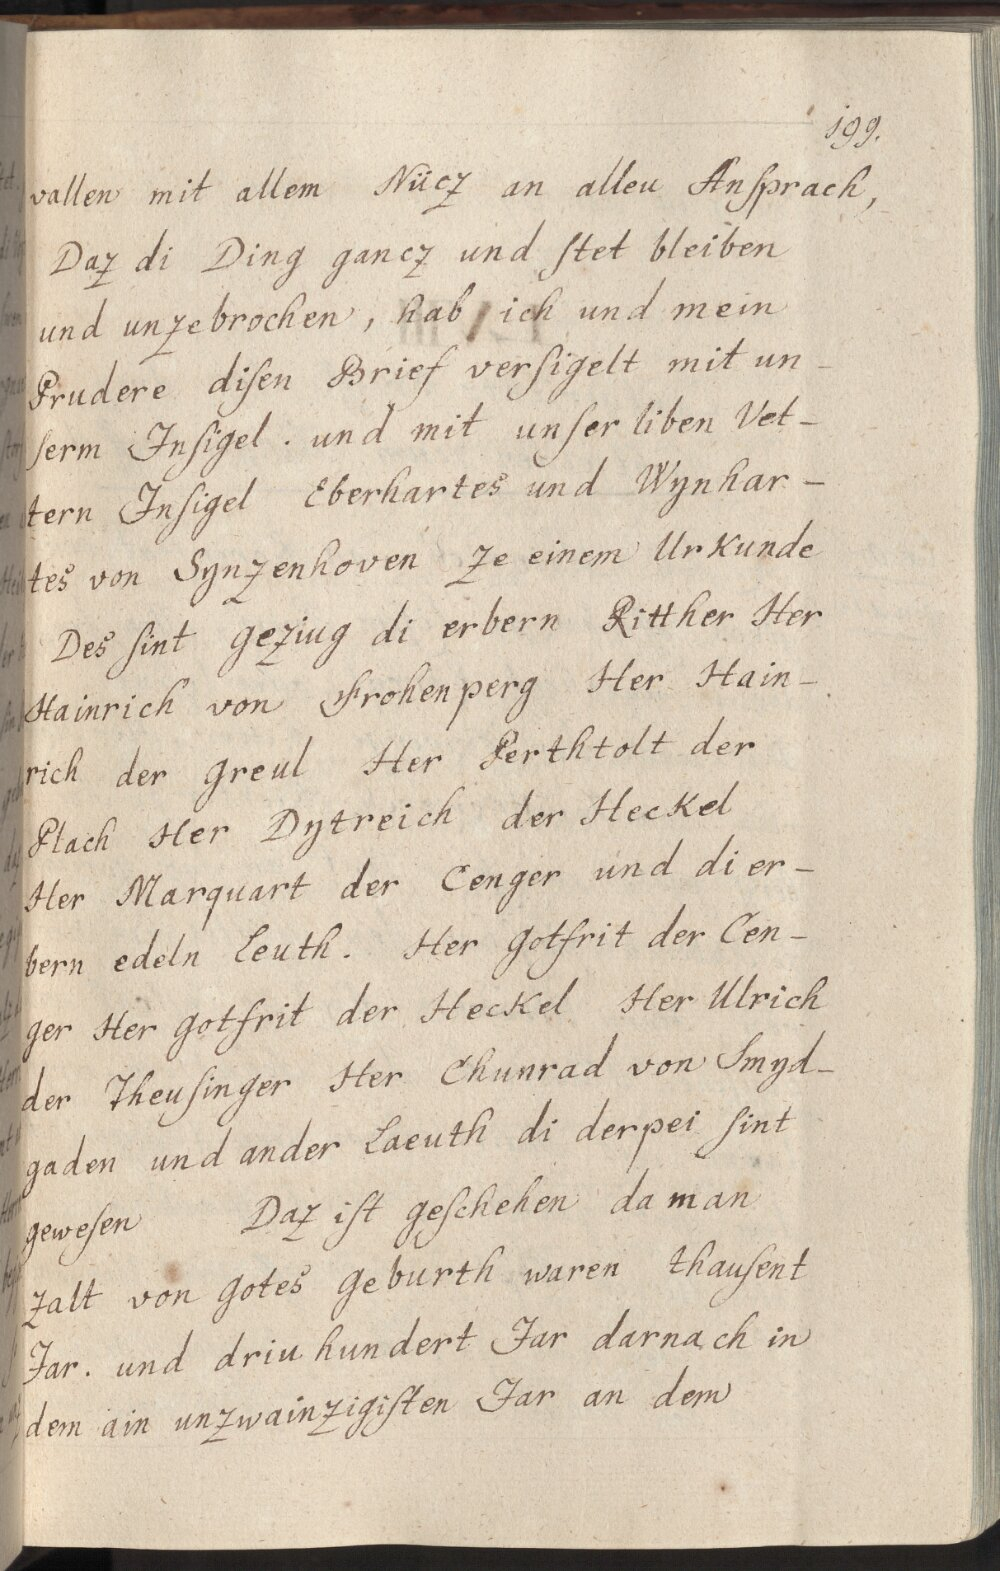 199.
vallen mit allem Nücz an alleu Ansprach,
Daz di Ding gancz und stet bleiben
und unzebrochen, hab ich und mein
Prudere disen Brief versigelt mit un-
serm Insigel. und mit unser liben Vet-
tern Insigel Eberhartes und Wynhar-
tes von Synzenhoven ze einem Urkunde
Des sint geziug di erbern Ritther Her
Hainrich von Frohenperg Her Hain-
rich der Greul Her Perthtolt der
Plach Her Dytreich der Heckel
Her Marquart der Cenger und di er-
bern edeln Leuth. Her Gotfrit der Cen-
ger Her Gotfrit der Heckel Her Ulrich
der Theusinger Her Chunrad von Smyd-
gaden und ander Laeuth di derpei sint
gewesen Daz ist geschehen da man
zalt von Gotes Geburth waren thausent
Jar. und driu hundert Jar darnach in
dem ain unzwainzigisten Jar an dem